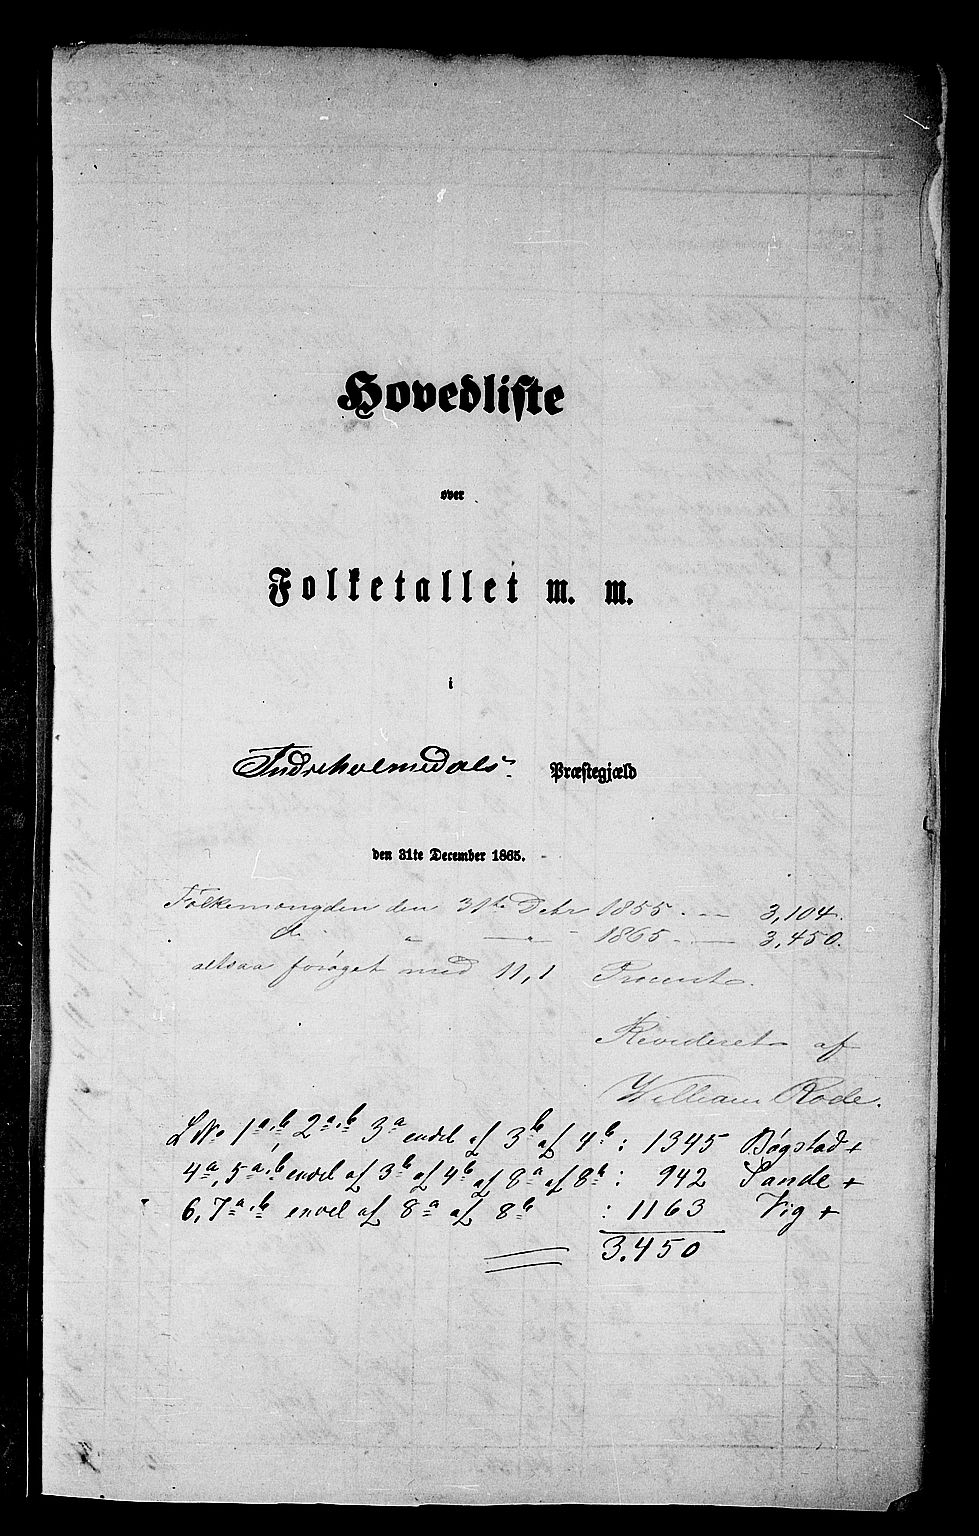 Hovedliste
over
Folketallet m. m.
i
Indreholmedals Præstegjæld
den 31te December 1865.
Folkemængden den 31te Debr 1855 — 3,104.
d. " — " — 1865 — 3,450.
altsaa forøget med 11,1 Procent.
Revideret af
William Rode.
L No 1a,b, 2a,b 3a endel af 3b af 4b: 1345 Bøgstad +
4a, 5a,b endel af 3b af 4b af 8a af 8b: 942 Sande +
6, 7a,b endel af 8a af 8b : 1163 Vig +
3.450